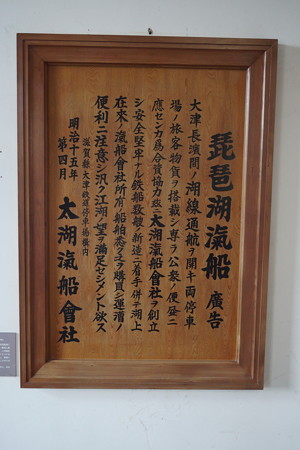 琵琶湖滊船 廣告
大津長濱間ノ湖線通航ヲ開キ両停車
場ノ旅客物貨ヲ搭載シ専ラ公衆ノ便益ニ
應センカ為合資協力茲ニ太湖滊船會社ヲ創立
シ安全堅牢ナル鉄船数艘ノ新造ニ着手併テ湖上
在来ノ滊船會社所有船舶悉ク之ヲ購買シ運漕ノ
便利ニ注意シ汎ク江湖ノ望ヲ満足セシメント欲ス
滋賀縣大津鉄道停車場構内
明治十五年
第四月
太湖滊船會社